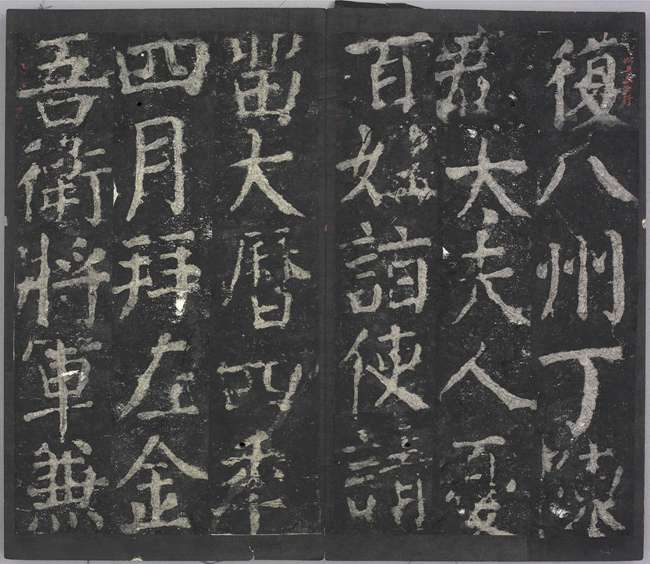 復八州丁陳
郡太夫人憂
百姓詣使請
畱大曆四秊
四月拜左金
吾衛將軍兼